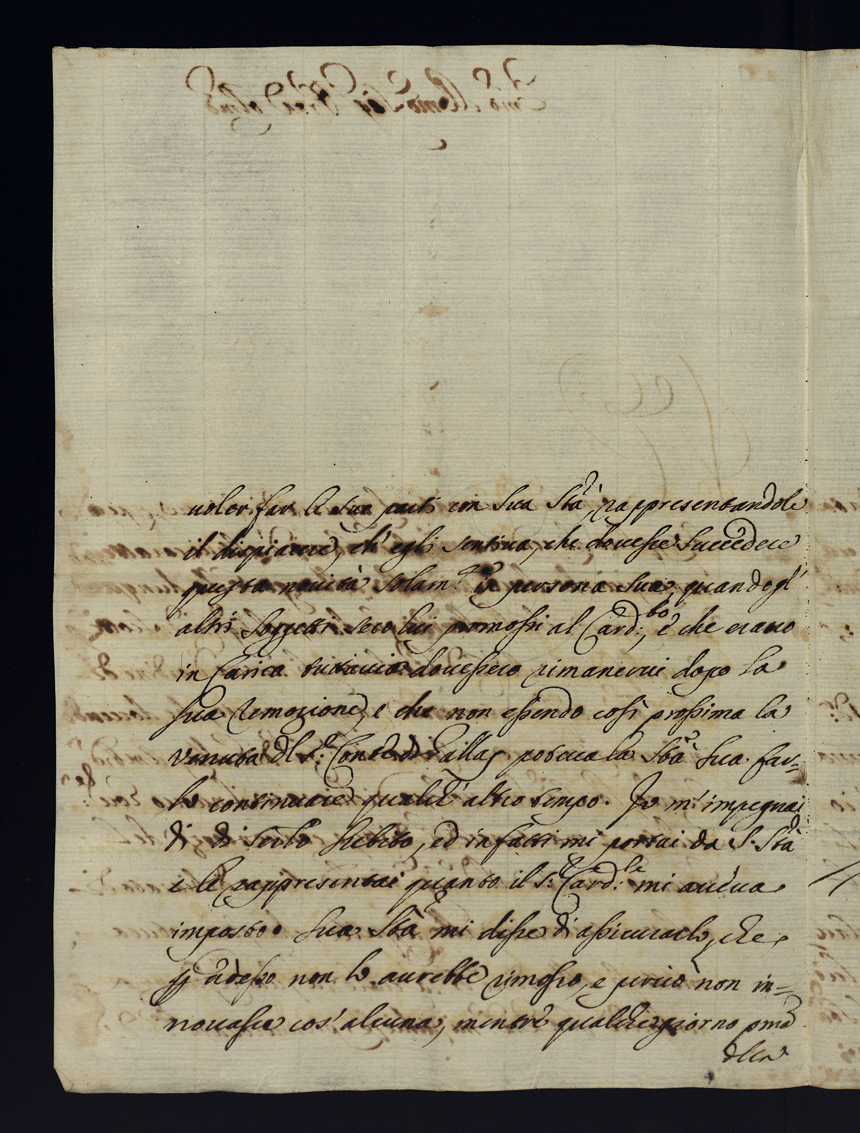 voler far le sue parti con Sua Stà, rappresentandole
il dispiacere, ch'egli sentiva, che dovesse succedere
questa novità solam.te in persona sua, quando gl'
altri soggetti seco lui promossi al Card.to, e che erano
in Carica tuttavia dovessero rimanervi dopo la
sua remozione, e che non essendo così prossima la
venuta del S.r Conte di Gallas poteva la Stà Sua far-
lo continuare qualch'altro tempo. Io m'impegnai
di di serlo subito, ed in fatti mi portai da S. Stà
e le rappresentai quanto il S.r Card.le mi aveva
imposto. Sua Stà mi disse di assicurarlo, che
p adesso non lo avrebbe rimosso, e perciò non in-
novasse cos'alcuna, mentre qualche giorno pmà
della